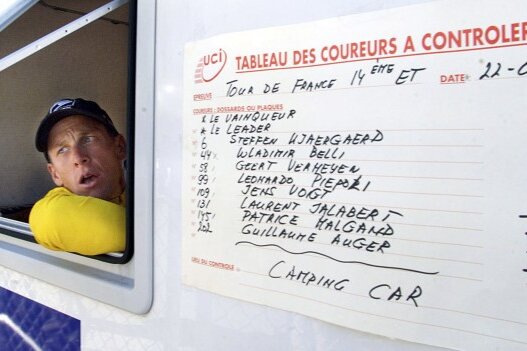 uci TABLEAU DES COUREURS A CONTROLER
EPREUVE TOUR DE FRANCE 14 ÈME ET DATE 22-0
COUREURS: DOSSARDS OU PLAQUES
* LE VAINQUEUR
* LE LEADER
6 STEFFEN KJAERGAERD
44 WLADIMIR BELLI
58 GEERT VERHEYEN
99 LEONARDO PIEPOLI
109 JENS VOIGT
131 LAURENT JALABERT
145 PATRICE HALGAND
202 GUILLAUME AUGER
LIEU DU CONTROLE
CAMPING CAR